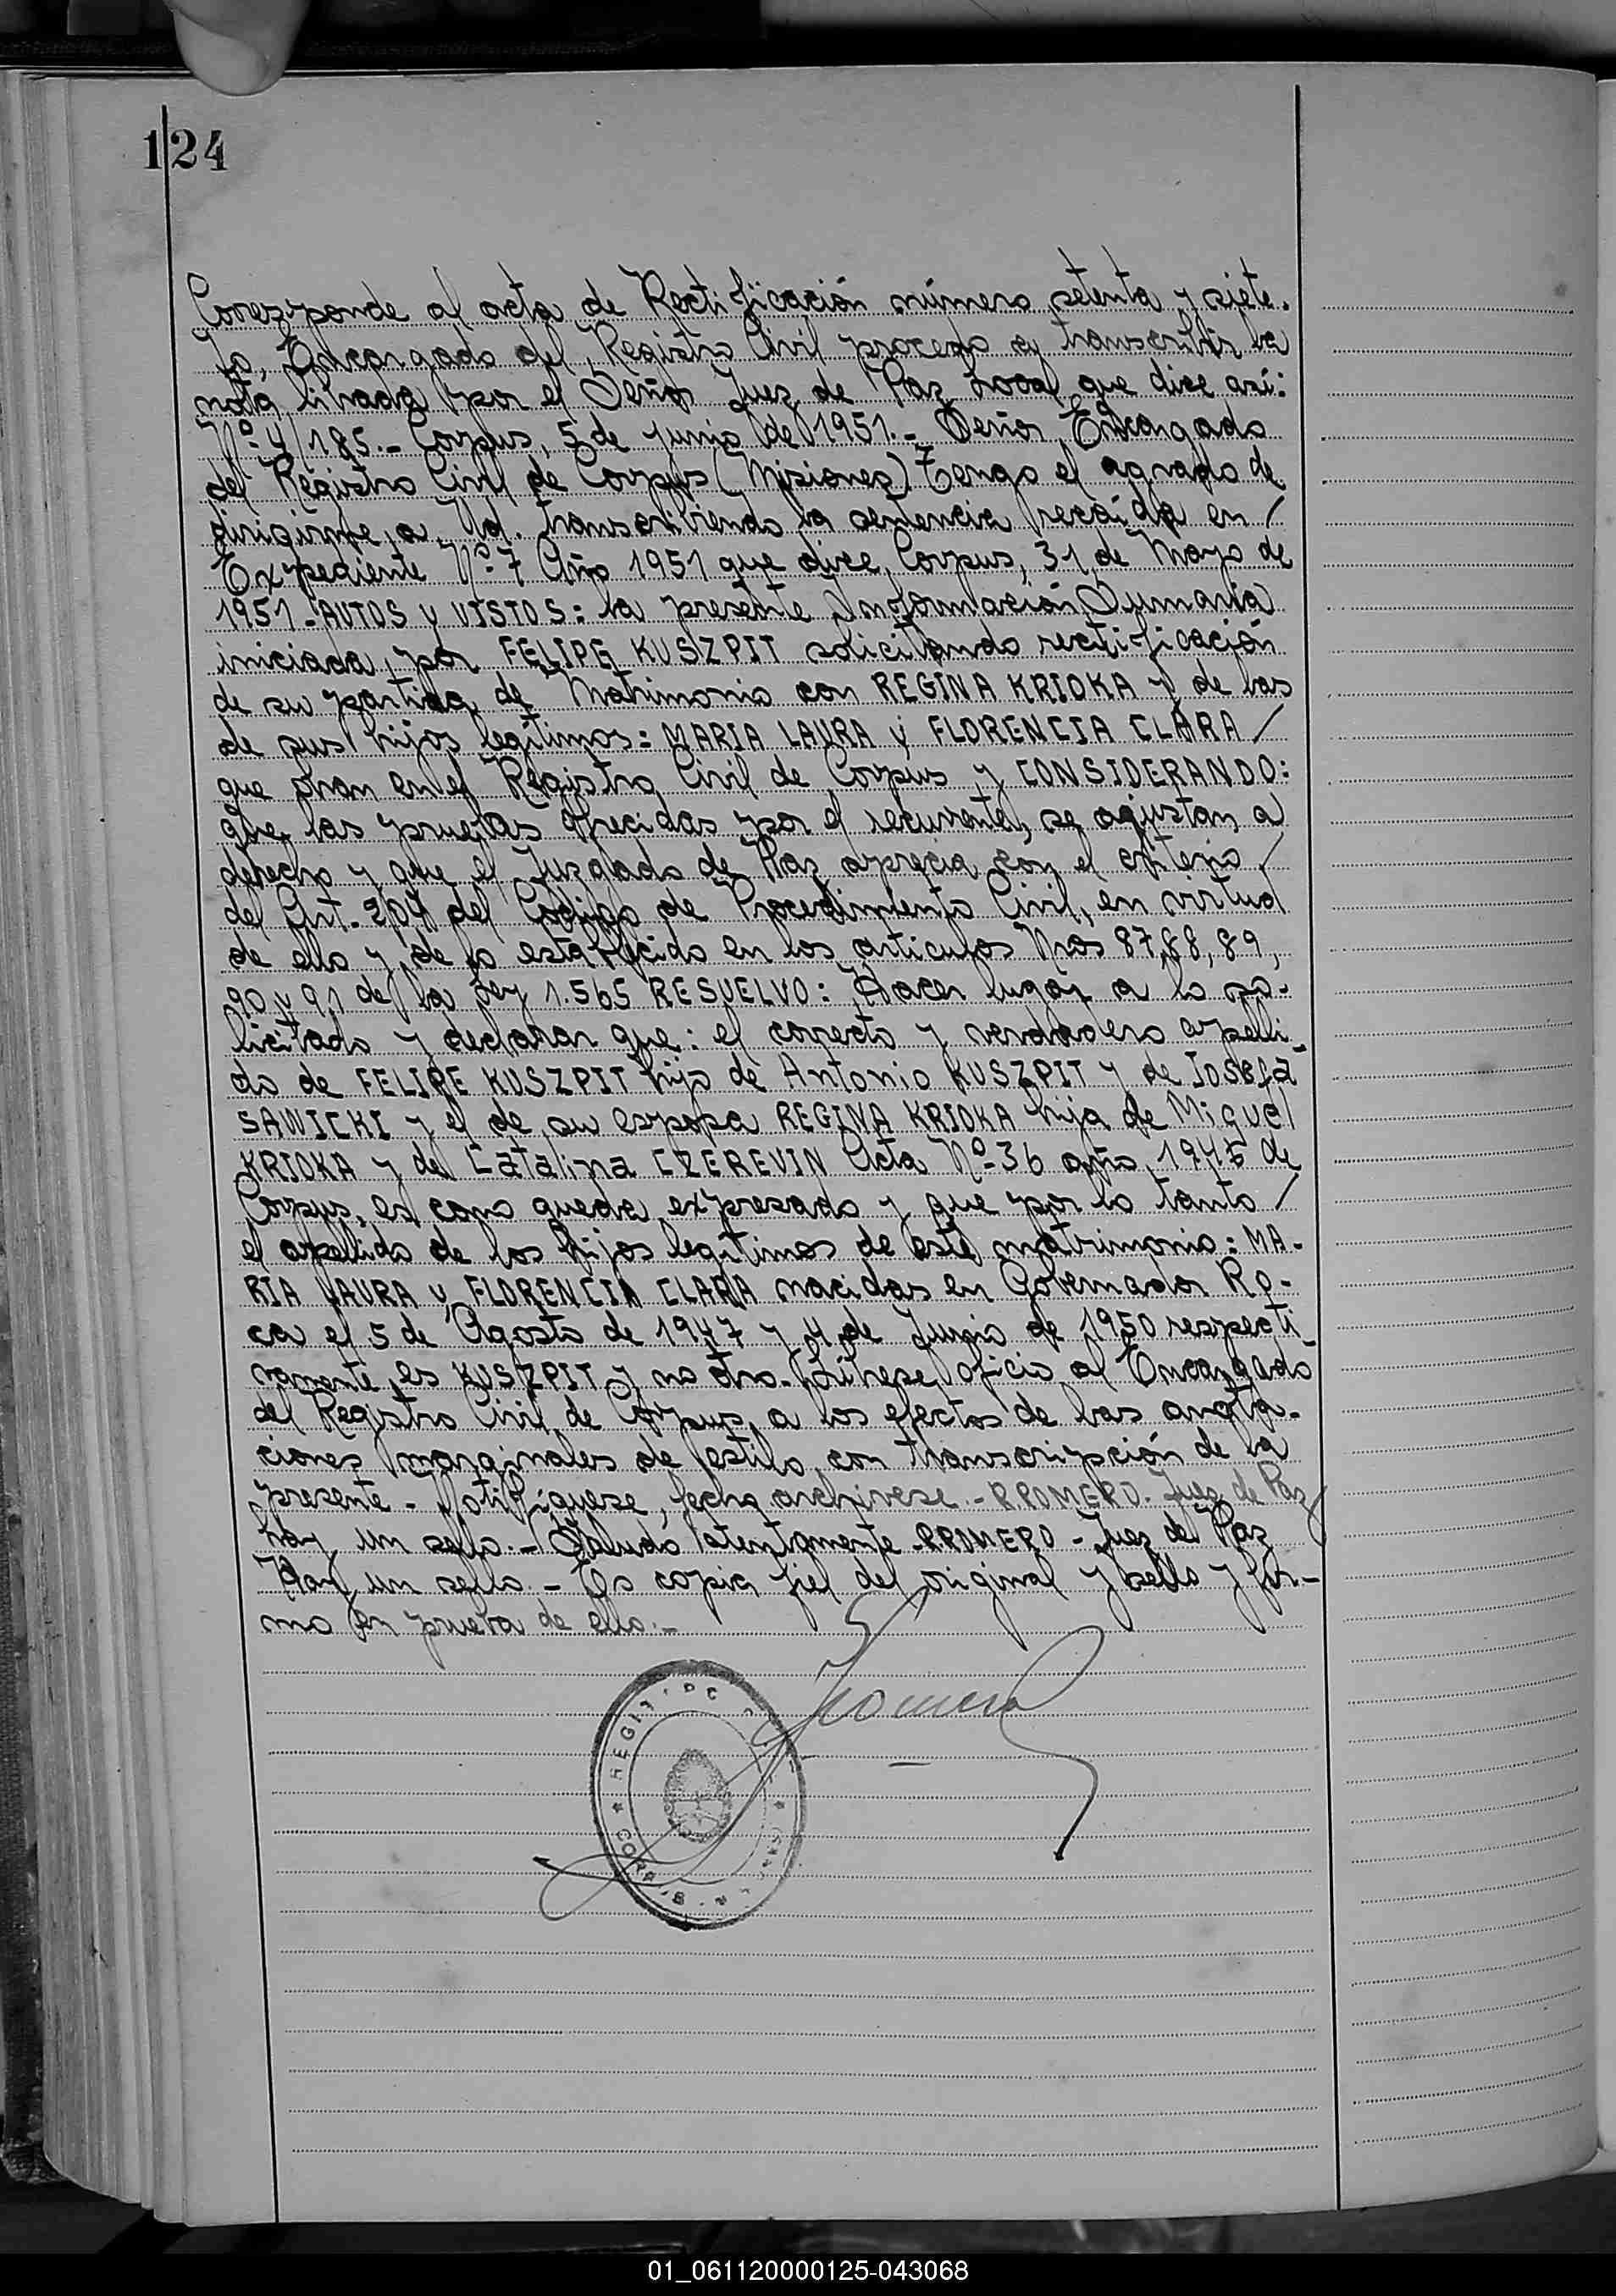 124
Corresponde al acta de Rectificación número setenta y siete.
Yo, Encargado del Registro Civil procedo a transcribir la
nota librada por el Señor Juez de Paz Local que dice así:
Nº 4/185.- Corpus, 5 de Junio de 1951.- Señor Encargado
del Registro Civil de Corpus (Misiones) Tengo el agrado de
dirigirme a Ud. transcriviendo la sentencia recaída en /
Expediente Nº 7 Año 1951 que dice, Corpus, 31 de Mayo de
1951.-AUTOS y VISTOS: la presente Información Sumaria
iniciada por FELIPE KUSZPIT solicitando rectificación
de su partida de Matrimonio con REGINA KRIOKA y de las
de sus hijos legítimos: MARIA LAURA y FLORENCIA CLARA /
que obran en el Registro Civil de Corpus y CONSIDERANDO:
que las pruebas ofrecidas por el recurrente, se ajustan a
derecho y que el Juzgado de Paz aprecia con el criterio /
del Art. del Código de Procedimiento Civil, en virtud
de ello y de lo establecido en los artículos Nros 87,88,89,
90 y 91 de la Ley 1.565 RESUELVO: Hacer lugar a lo so-
licitado y declarar que: el correcto y verdadero apelli-
do de FELIPE KUSZPIT hijo de Antonio KUSZPIT y de Josefa
SAWICKI y el de su esposa REGINA KRIOKA hija de Miguel
KRIOKA y de Catalina CZEREVIN Acta Nº 36 año de
Corpus, es como queda expresado y que por lo tanto /
el apellido de los hijos legítimos de este matrimonio: MA-
RIA LAURA y FLORENCIA CLARA nacidas en Gobernador Ro-
ca el 5 de Agosto de 1947 y 4 de Junio de 1950 respecti-
vamente es KUSZPIT y no otro.- Líbrese oficio al Encargado
del Registro Civil de Corpus, a los efectos de las anota-
ciones marginales de estilo con transcripción de la
presente - Notifíquese, fecho archívese.- R.ROMERO. Juez de Paz
hay un sello.- Saludo atentamente R.ROMERO - Juez de Paz
Hay un sello.- Es copia fiel del original y sello y fir-
mo en prueba de ello.-
01_061120000125-043068